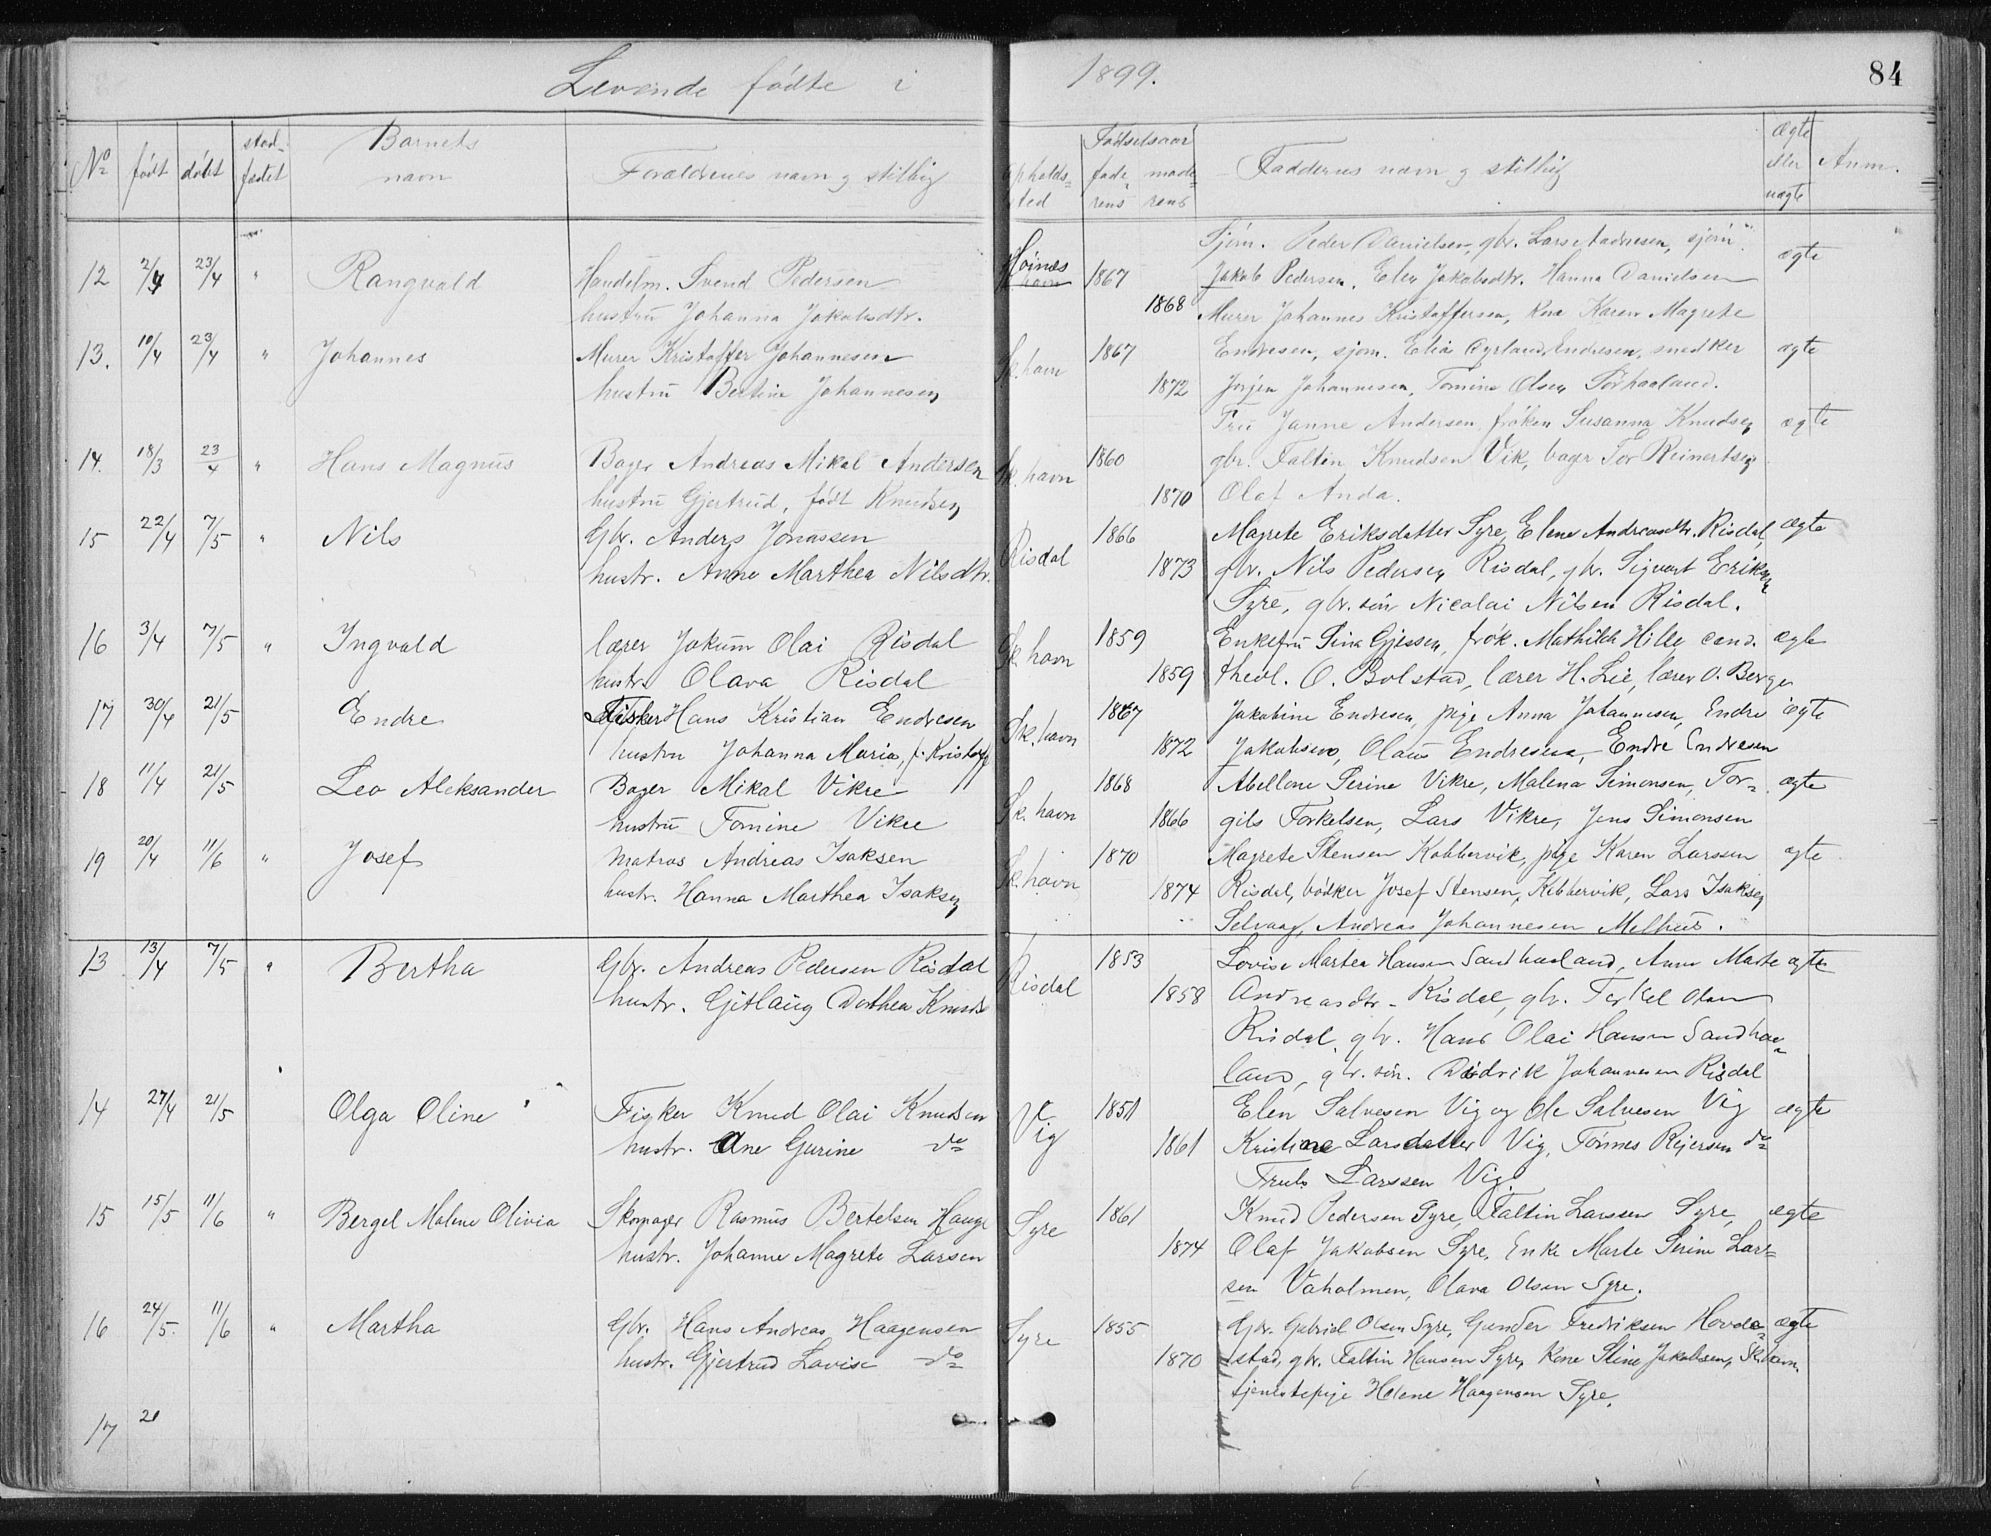 Levende fødte i 1899. 84
No født døbt stadfæstet Barnets navn Forældrenes navn og stilling Opholdssted Fødselsaar faderens moderens Faddernes navn og stilling ægte eller uægte Anm.
Sjøm. Peder Danielsen, gbr. Lars Andresen, sjøm.
12 2/4 23/4 " Rangvald Handelm. Svend Pedersen Høines 1867 Jakob Pedersen, Elen Jakobsdtr. Hanna Danielsen ægte
hustru Johanna Jakobsdtr. 1868 Murer Johannes Kristoffersen, Kona Karen Magrete
13. 10/4 23/4 " Johannes Murer Kristoffer Johannesen Sk.havn 1867 Endresen, sjøm. Elias Øyrland, Endresen, snedker ægte
hustru Bertine Johannesen 1872 Jørgen Johannesen, Tomine Olsen Sørhaaland.
Fru Janne Andersen, frøken Susanna Knudsen ægte
14. 18/3 23/4 " Hans Magnus Bager Andreas Mikal Andersen Sk.havn 1860 gbr. Faltin Knudsen Vik, bager Tor Reinertsen
hustru Gjertrud, født Knudsen 1870 Olaf Anda.
15 22/4 7/5 " Nils Gbr. Anders Jonassen Risdal 1866 Magrete Eriksdatter Syre, Elene Andreasdtr. Risdal, ægte
hustr. Anne Marthea Nilsdtr. 1873 gbr. Nils Pedersen Risdal, gbr. Sigvart Eriksen
Syre, gbr. søn Nicolai Nilsen Risdal.
16 3/4 7/5 " Ingvald lærer Jokum Olai Risdal Sk.havn 1859 Enkefru Sina Gjessen, frøk. Mathilde Hille cand. ægte
hustr. Olava Risdal 1859 theol. O. Bolstad, lærer H. Lie, lærer O. Berge
17 30/4 21/5 Endre Fisker Hans Kristian Endresen Sk.havn 1867 Jakobine Endresen, pige Anna Johannesen, Endre ægte
hustru Johanna Maria, f. Kristoff 1872 Jakobsen, Olaus Endresen, Endre Endresen
18 11/4 21/5 Leo Aleksander Bager Mikal Vikre Sk.havn 1868 Abellone Serine Vikre, Malena Simonsen, Tor- ægte
hustru Tomine Vikre 1866 gils Torkelsen, Lars Vikre, Jens Simonsen
19 20/4 11/6 " Josef Matros Andreas Isaksen Sk.havn 1870 Magrete Stensen Kobbervik, pige Karen Larssen ægte
hustr. Hanna Marthea Isaksen 1874 Risdal, bødker Josef Stensen, Kobbervik, Lars Isaksen
Selvaag, Andreas Johannesen Melhus.
13 13/4 7/5 " Bertha Gbr. Andreas Pedersen Risdal Risdal 1853 Lovise Martea Hansen Sandhaaland, Anne Marte ægte
hustr. Gitlaug Dorthea Knuds 1858 Andreasdtr. Risdal, gbr. Torkel Olsen
Risdal, gbr. Hans Olai Hansen Sandhaa-
land, gbr. søn. Didrik Johannesen Risdal
14 27/4 21/5 Olga Oline Fisker Knud Olai Knudsen Vig 1851 Elen Salvesen Vig og Ole Salvesen Vig ægte
hustr. Ane Gurine do 1861 Kristiane Larsdatter Vig, Tønnes Reiersen do
Truls Larssen Vig.
15 15/5 11/6 " Bergel Malene Olivia Skomager Rasmus Bertelsen Hauge Syre 1861 Knud Pedersen Syre, Faltin Larssen Syre, ægte
hustr. Johanne Magrete Larsen 1874 Olaf Jakobsen Syre, Enke Marte Serine Lars-
sen Vaholmen, Olava Olsen Syre.
16 24/5. 11/6 " Martha Gbr. Hans Andreas Haagensen Syre 1855 Gbr. Gabriel Olsen Syre, Gunder Fredriksen Hovde- ægte
hustr. Gjertrud Lovise do 1870 stad, gbr. Faltin Hansen Syre, Kone Stine Jakobsen, Sk.havn.
tjenestepige Helene Haagensen Syre.
17 21